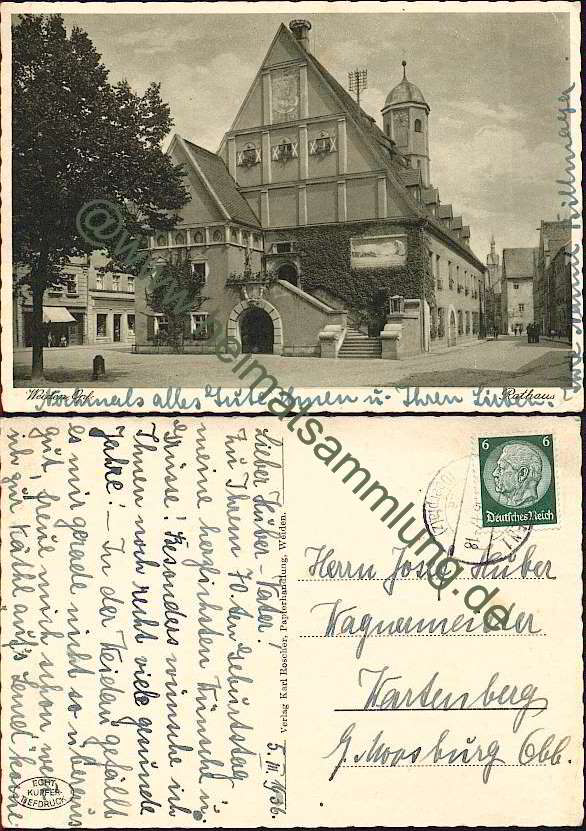 Weiden Opf.
Rathaus
Nochmals alles Gute Ihnen u. Ihren Lieben.
@ www.heimatsammlung.de
5. III. 1936.
Lieber Huber-Vater!
Zu Ihrem 70. ten Geburtstag
meine herzlichsten Wünsche u.
Grüße! Besonders wünsche ich
Ihnen noch recht viele gesunde
Jahre! – In der Weiden gefällt
es mir gerade nicht so überaus
gut, freue mich schon, wenn
ich zur Käthe auf's Land komme.
Verlag Karl Roscher, Papierhandlung, Weiden.
ECHT
KUPFER-
TIEFDRUCK
6 6
Deutsches Reich
Herrn Josef Huber
Wagnermeister
Wartenberg
b. Moosburg Obb.